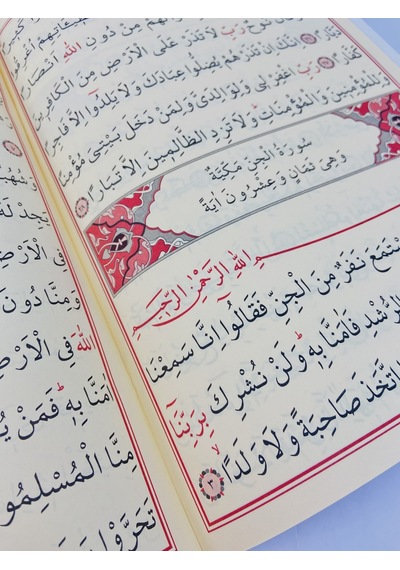 مِنْ دُونِ اللّٰهِ اَنْصَارًا
نُوحٌ رَبِّ لَا تَذَرْ عَلَى الْاَرْضِ مِنَ الْكَافِرِينَ
اِنَّكَ اِنْ تَذَرْهُمْ يُضِلُّوا عِبَادَكَ وَلَا يَلِدُوا اِلَّا فَاجِرًا
كَفَّارًا رَبِّ اغْفِرْ لِى وَلِوَالِدَىَّ وَلِمَنْ دَخَلَ بَيْتِىَ مُؤْمِنًا
وَلِلْمُؤْمِنِينَ وَالْمُؤْمِنَاتِ وَلَا تَزِدِ الظَّالِمِينَ اِلَّا تَبَارًا
سُورَةُ الْجِنِّ مَكِّيَّةٌ
وَهِىَ ثَمَانٍ وَعِشْرُونَ اٰيَةً
بِسْمِ اللّٰهِ الرَّحْمٰنِ الرَّحِيمِ
اسْتَمَعَ نَفَرٌ مِنَ الْجِنِّ فَقَالُوا اِنَّا سَمِعْنَا
الرُّشْدِ فَاٰمَنَّا بِهٖ وَلَنْ نُشْرِكَ بِرَبِّنَا
اتَّخَذَ صَاحِبَةً وَلَا وَلَدًا ٣
فِى الْاَرْضِ
وَمِنَّا دُونَ
اللّٰهَ فِى الْاَرْضِ
اٰمَنَّا بِهٖ فَمَنْ
مِنَّا الْمُسْلِمُونَ
تَحَرَّوْا رَشَدًا